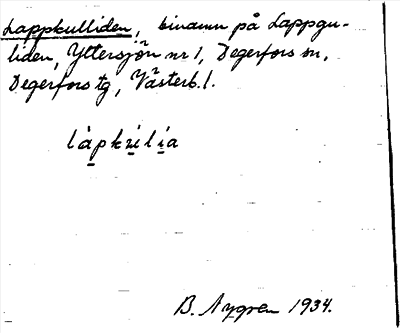 Lappkulliden, binamn på Lappgu-
liden, Yttersjön nr 1, Degerfors sn,
Degerfors tg, Västerb. l.
B. Nygren 1934.